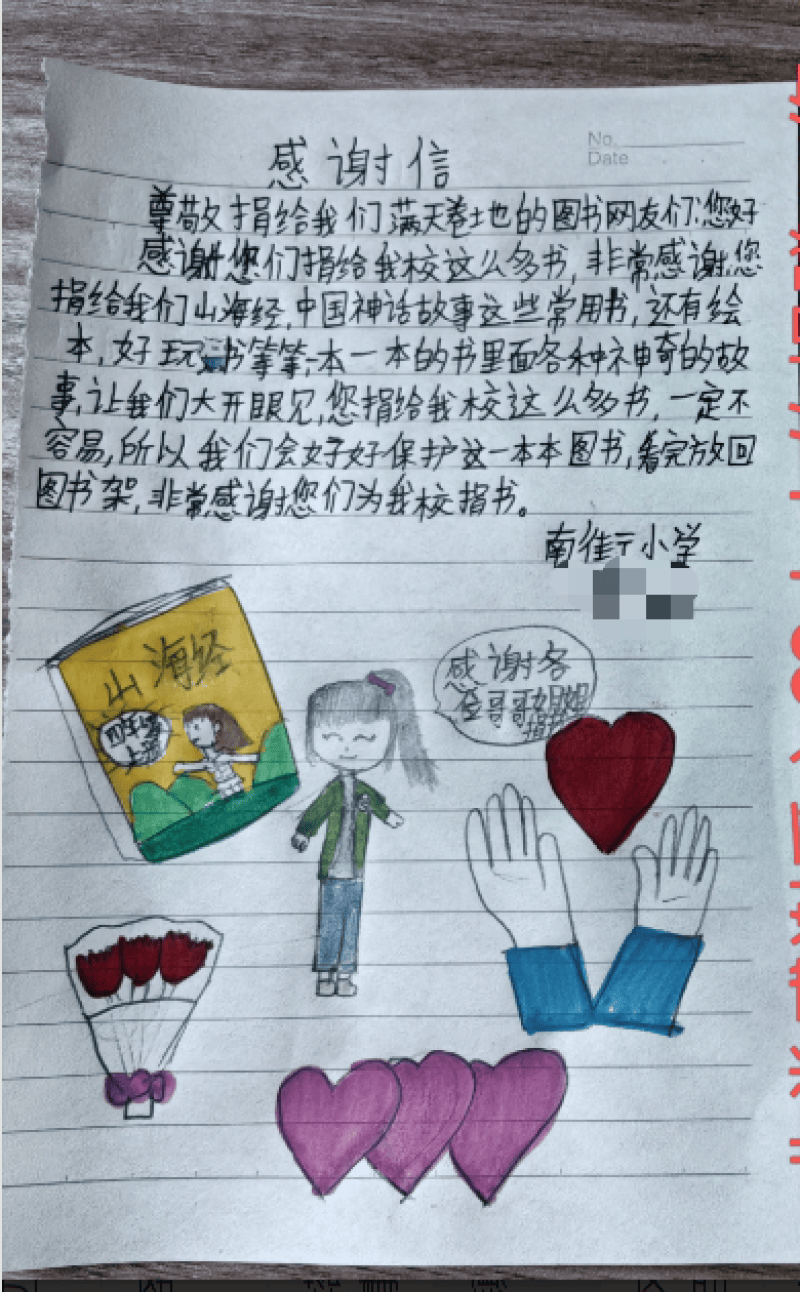 No.
Date
感谢信
尊敬捐给我们满天卷地的图书网友们:您好
感谢您们捐给我校这么多书,非常感谢您
捐给我们山海经,中国神话故事这些常用书,还有绘
本,好玩书等等,一本一本的书里面各种神奇的故
事,让我们大开眼见,您捐给我校这么多书,一定不
容易,所以我们会好好保护这一本本图书,看完放回
图书架,非常感谢您们为我校捐书。
小学
山海经
四年级
上册
感谢各
位哥哥姐姐
捐款